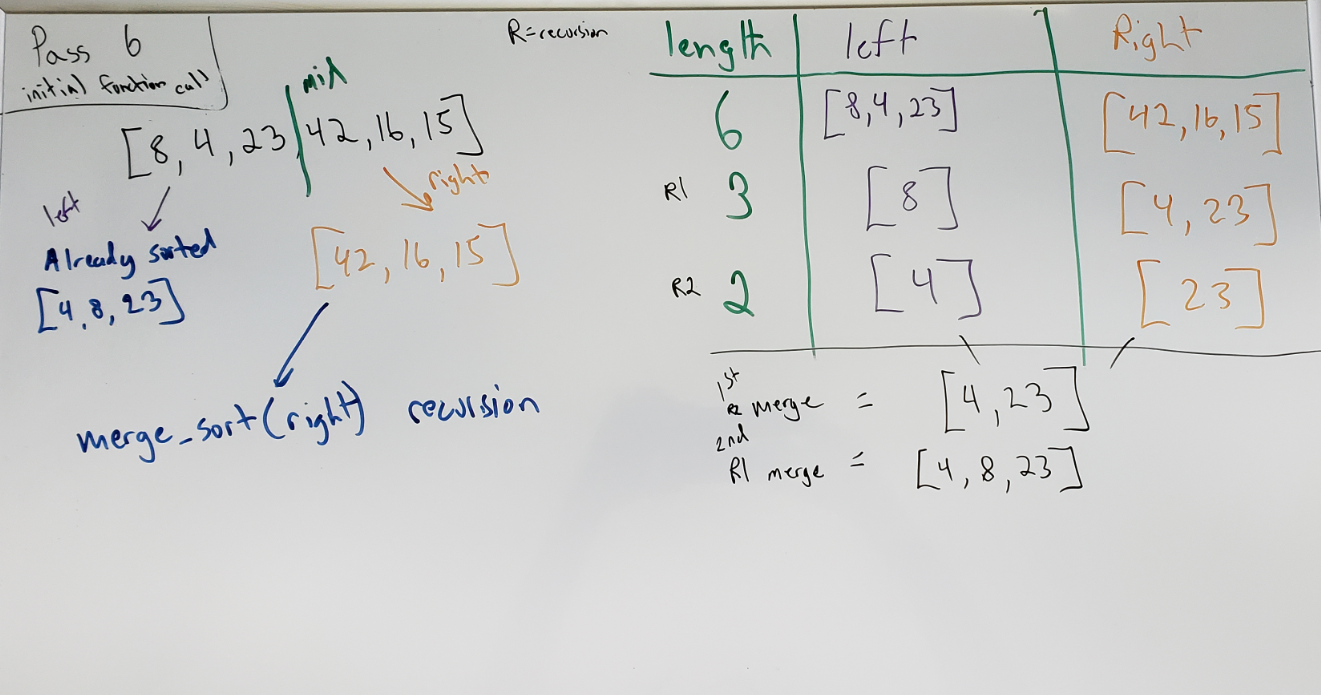 Pass 6
initial function call
mid
[8, 4, 23, 42, 16, 15]
left
right
Already sorted
[4, 8, 23]
[42, 16, 15]
merge_sort(right) recursion
R=recursion
length left Right
6 [8,4,23] [42,16,15]
R1 3 [8] [4, 23]
R2 2 [4] [23]
1st
R2 merge = [4, 23]
2nd
R1 merge = [4, 8, 23]